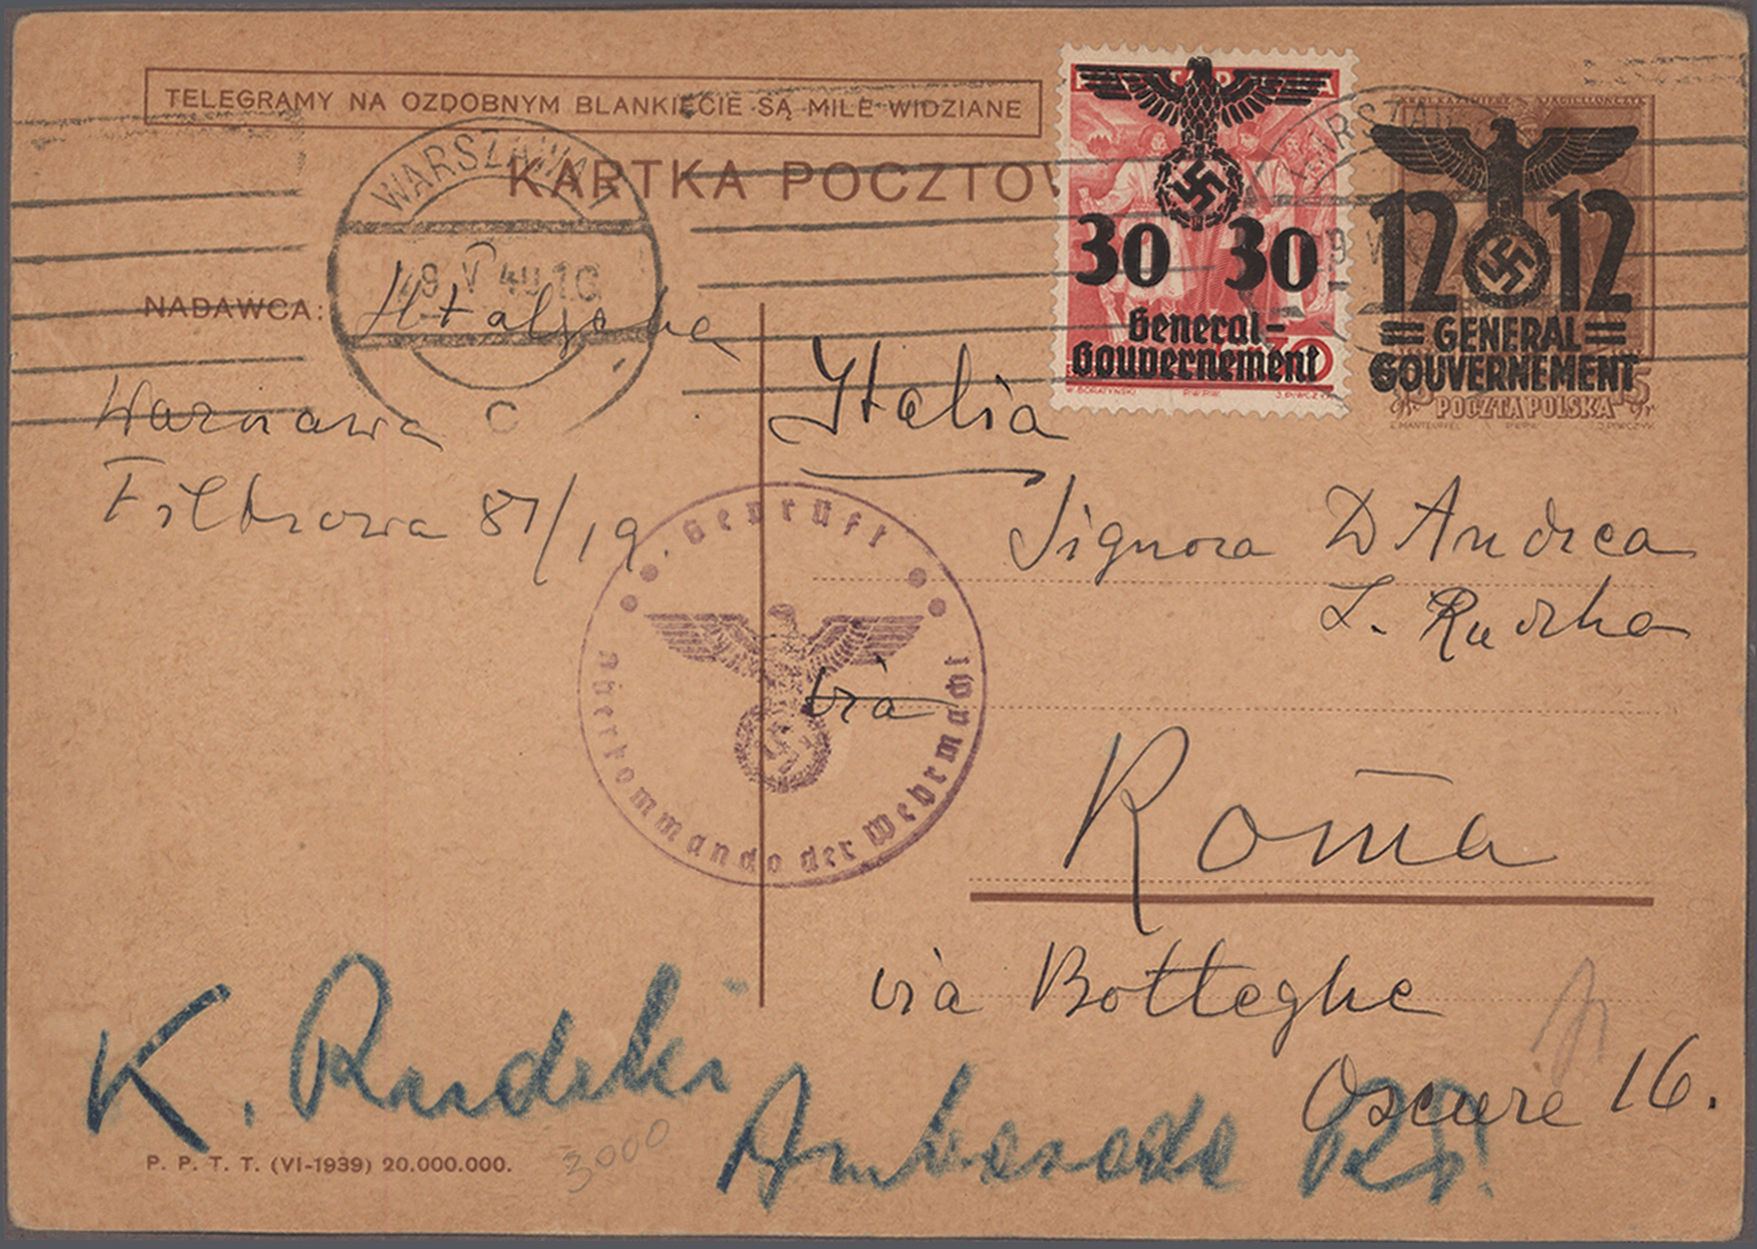 TELEGRAMY NA OZDOBNYM BLANKIECIE SĄ MILE WIDZIANE
KARTKA POCZTOW
WARSZAWA
9 V 40 16
C
30 30
General=
Gouvernement
W. BORATYŃSKI P.W.P.W. J. PIWCZYK
12 12
=GENERAL=
GOUVERNEMENT
gr POCZTA POLSKA gr
NADAWCA:
Warszawa
Filtrowa 81/19.
Italia
Signora D'Andrea
L. Rudzka
via
Geprüft
Oberkommando der Wehrmacht
Roma
via Botteghe
Oscure 16.
K. Rudzki
Ambasada
3000
P. P. T. T. (VI-1939) 20.000.000.